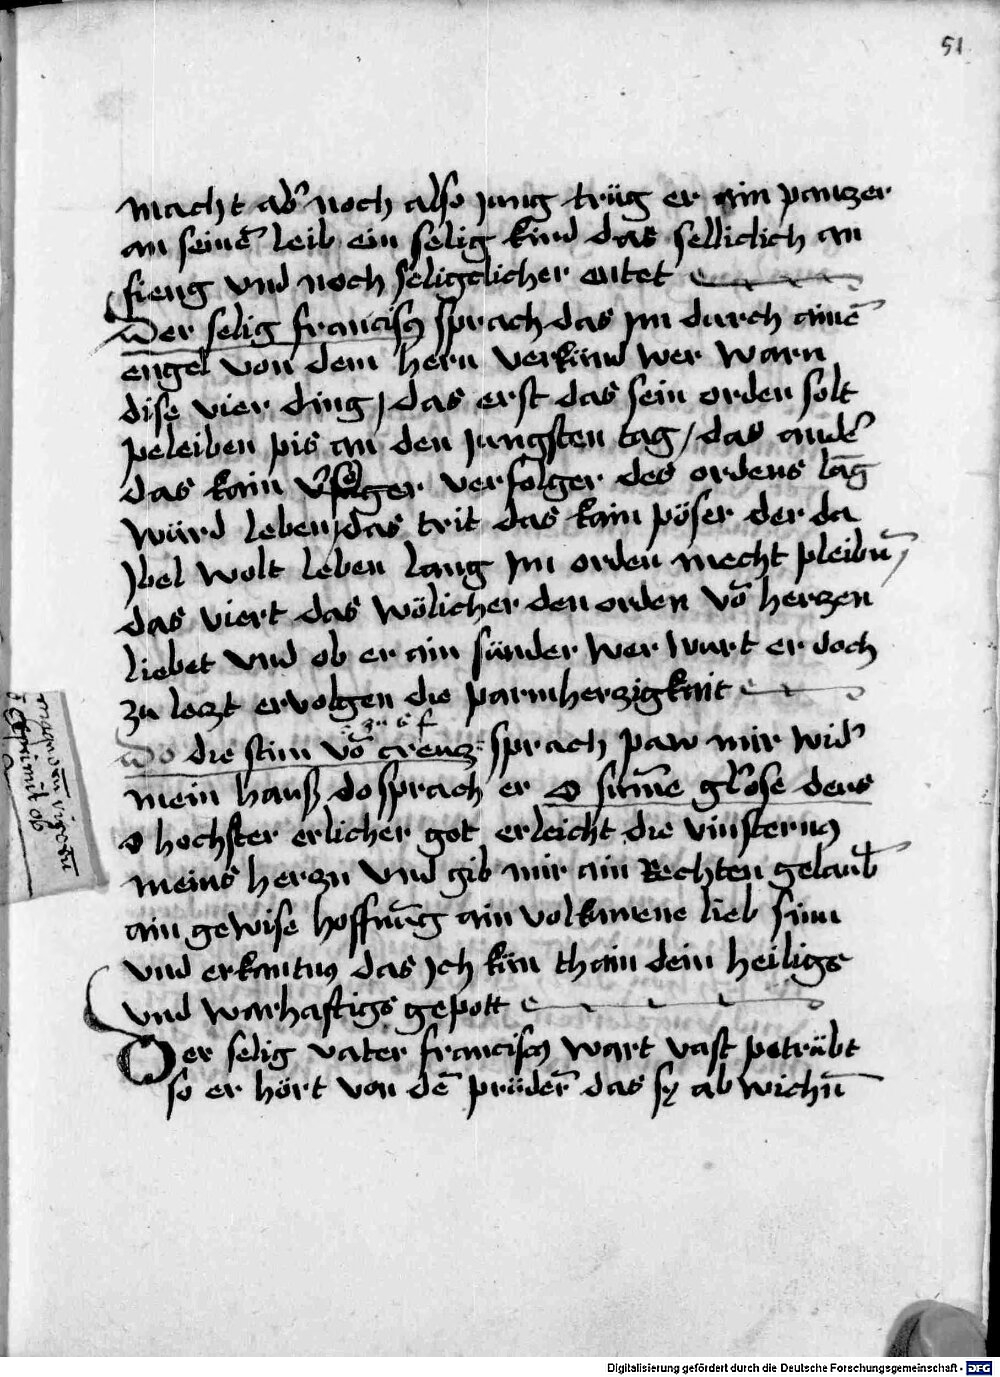 51
macht ab' noch also jung trüg er ain panzer
an seinē leib ein selig kind das selliclich an
fieng und noch seligclicher entet
Der selig franciscꝰ sprach das im durch ainē
engel von dem hern verkünd wer warn
dise vier ding / das erst das sein orden solt
peleiben pis an den jungsten tag / das andē
das kain verfolger des ordens lāg
würd leben / das trit das kain pöser der da
jbel wolt leben lang im orden mecht pleibn̄ /
das viert das wölicher den orden vō herzen
liebet und ob er ain sünder wer wurt er doch
zu lezt ervolgen die parmherzigkait
zu s f
Do die stim vō creuz sprach paw mir wid'
mein hauß do sprach er O sum̄e gl'ose deus
O hochster erlicher got erleicht die vinsternꝰ
meins herzn und gib mir ain Rechten gelaub
ain gewise hoffnūg ain volkumene lieb sinn
und erkantnꝰ das jch kün thain dein heiligs
und warhaftigs gepott
Der selig vater franciscꝰ wart vast petrübt
so er hört von dē prüdern̄ das sy ab wichn̄
Digitalisierung gefördert durch die Deutsche Forschungsgemeinschaft - DFG